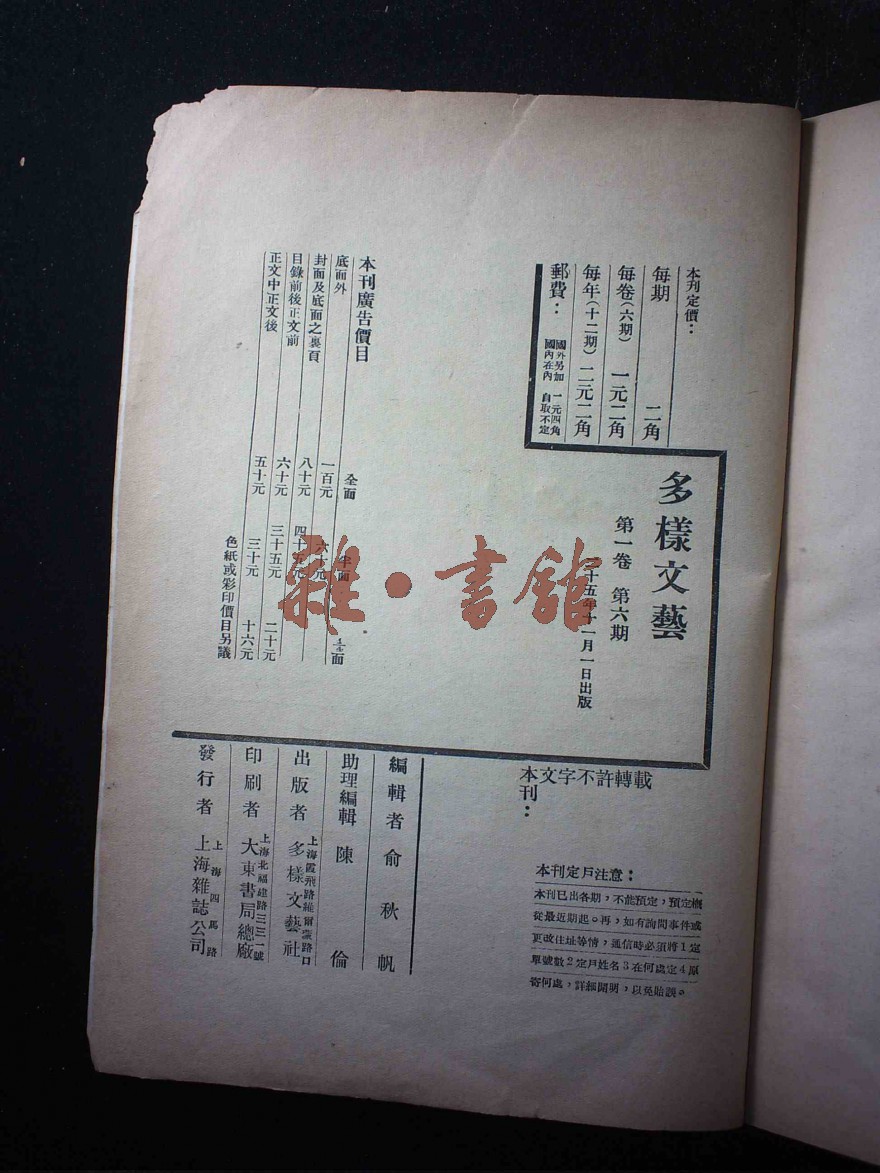 本刋定價：
每期 二角
每卷（六期） 一元二角
每年（十二期） 二元二角
郵費： 國外另加 一元四角
國內在內 自取不定
多樣文藝
第一卷 第六期
十五年十一月一日出版
本刊廣告價目
全面 半面 面
底面外 一百元 六十元
封面及底面之裏頁 八十元 四十五元
目錄前後正文前 六十元 三十五元 二十元
正文中正文後 五十元 三十元 十六元
色紙或彩印價目另議
雜·書館
本刊：
文字不許轉載
本刊定戶注意：
本刊已出各期，不能預定，預定概
從最近期起。再，如有詢問事件或
更改住址等情，通信時必須將1定
單號數2定戶姓名3在何處定4原
寄何處，詳細開明，以免貽誤。
編輯者 俞秋帆
助理編輯 陳倫
出版者 多樣文藝社
上海霞飛路維爾蒙路口
印刷者 大東書局總廠
上海北福建路三三一號
發行者 上海雜誌公司
上海四馬路